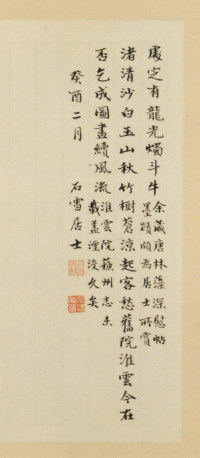 處定有龍光燭斗牛余藏唐林藻深慰帖
墨蹟頗為居士所賞
渚清沙白玉山秋竹樹蒼涼起客愁舊院淮雲今在
否乞成圖畫續風流淮雲院蘇州志未
載蓋湮沒久矣
癸酉二月
石雪居士